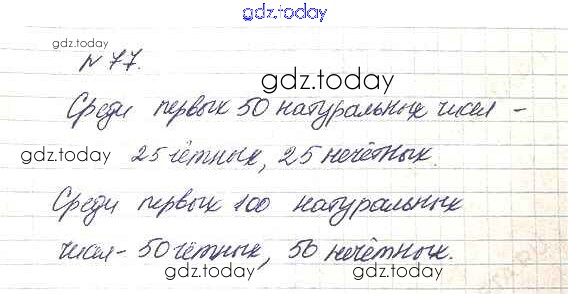 gdz.today
gdz.today
№ 77.
gdz.today
Среди первых 50 натуральных чисел -
gdz.today
25 чётных, 25 нечётных.
Среди первых 100 натуральных
чисел - 50 чётных, 50 нечётных.
gdz.today
gdz.today